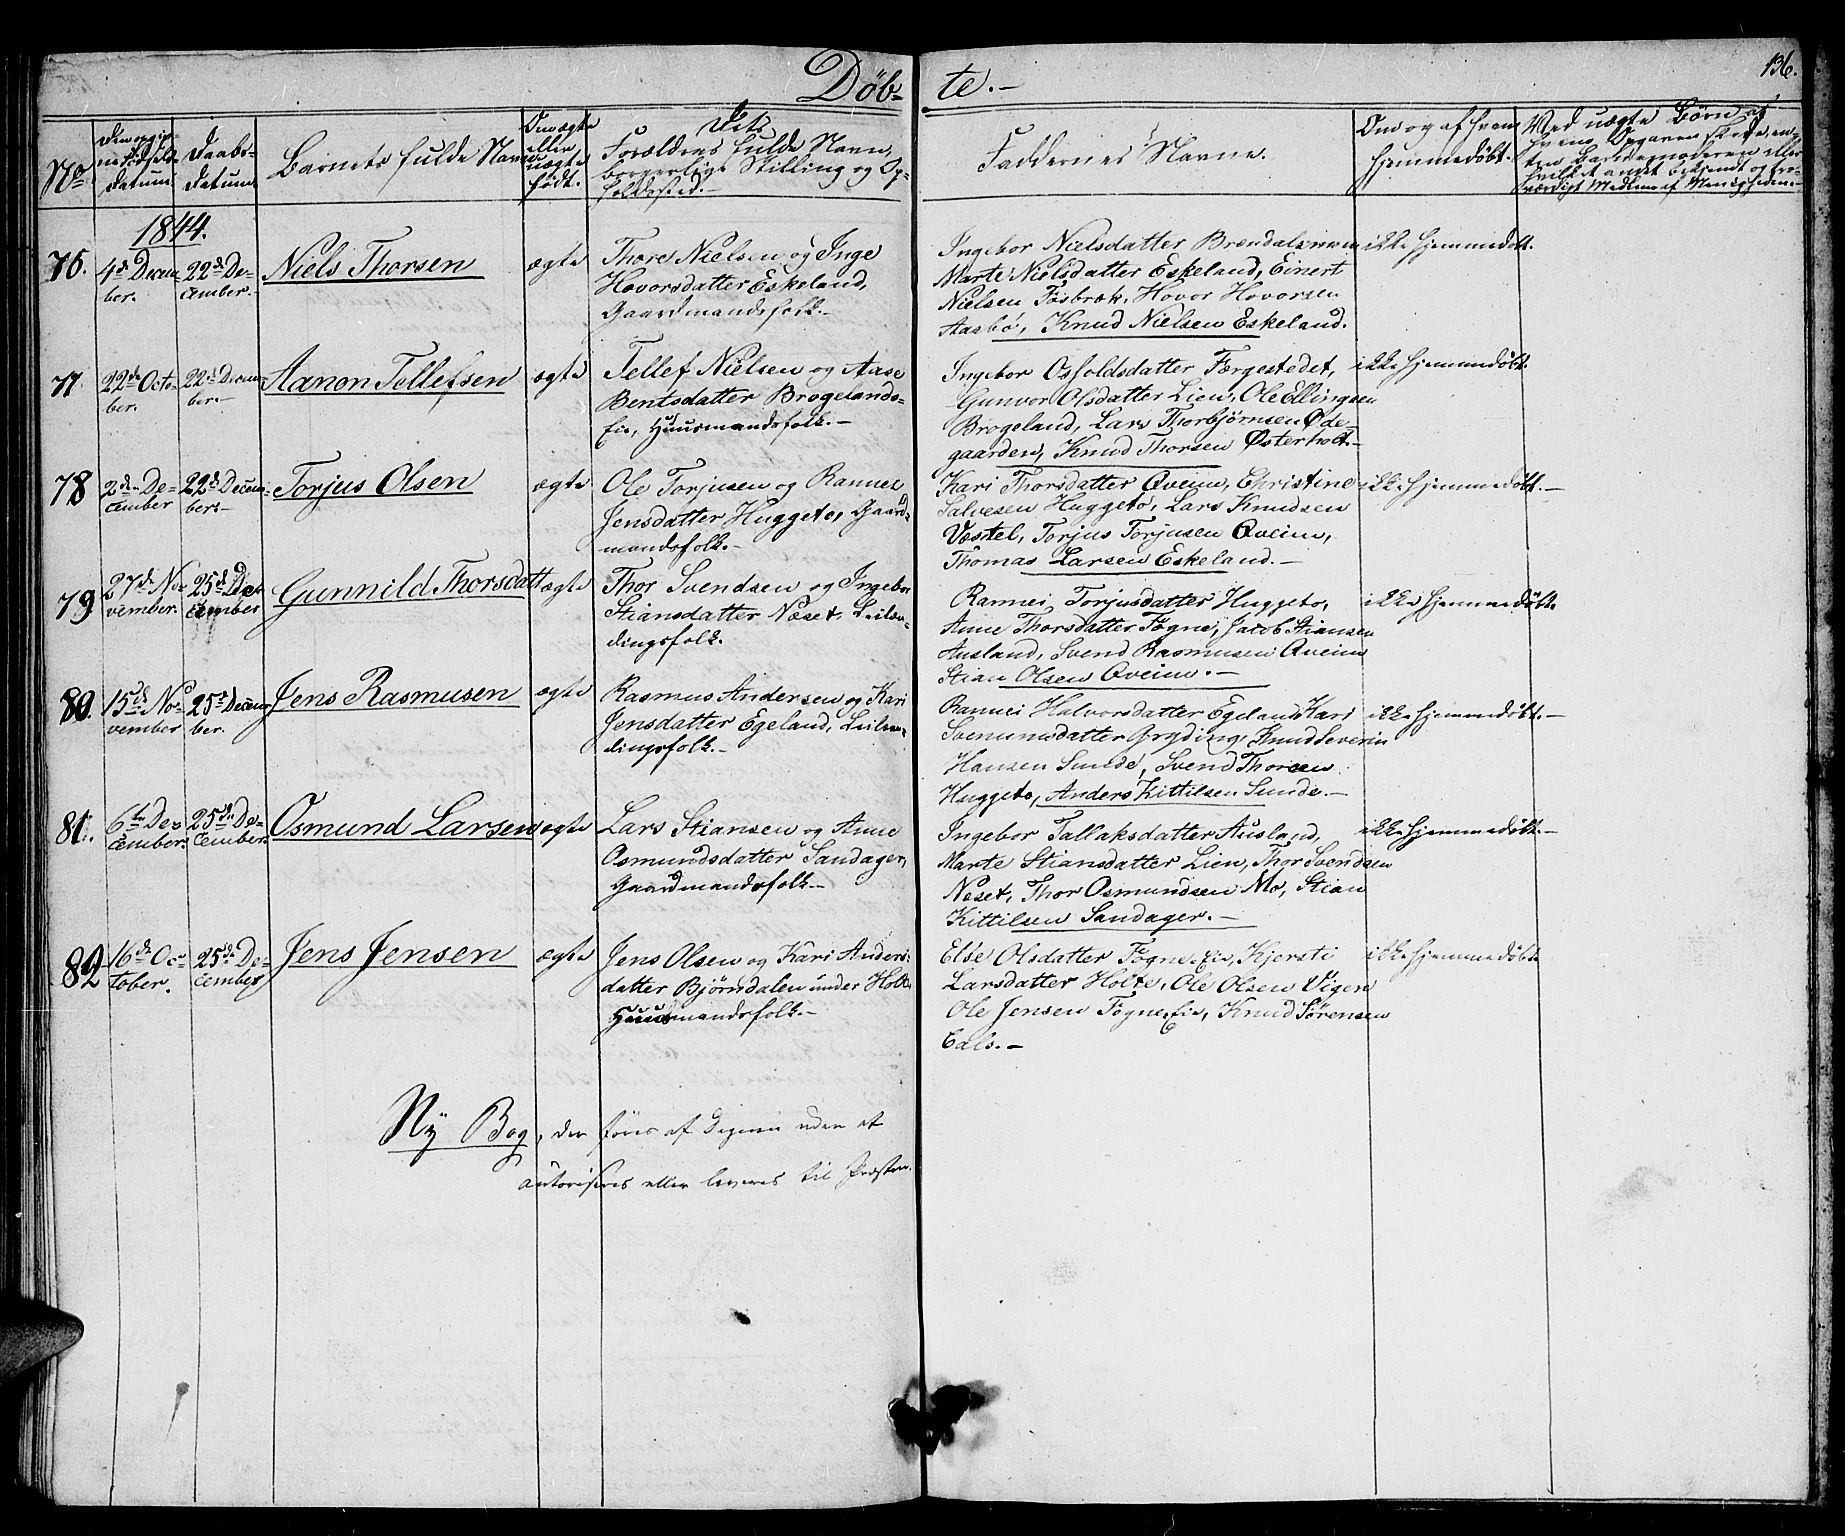 Döb-te.-
136.
No
Den opgiv-
ne Födsels
Datum
Daabs-
datum
Barnets fulde Navn
Om ægte
eller
uægte
född.
Dets
Forældres fulde Navn,
borgerlige Stilling og Op-
holdssted.-
Faddernes Navne.
Om og af hvem
hjemmedöbt.
Ved uægte Börn af
hvem Opgaven skede, en-
ten Barnemoderen eller
hvilket andet bekjendt og tro-
værdigt Medlem af Menigheden.-
1844.
76.
4de Decem
ber.
22de De-
cember.-
Niels Thorsen
ægte
Thore Nielsen og Inge
Hovorsdatter Eskeland,
Gaardmandsfolk.-
Ingebor Nielsdatter
Marte Nielsdatter Eskeland, Einert
Nielsen Fosbræk, Hovor Hovorsen
Aasbö, Knud Nielsen Eskeland.
ikke hjemmedöbt.
77
22de Octo-
ber.
22de Decem
ber.-
Aanon Tellefsen
ægte
Tellef Nielsen og Aase
Bentsdatter Brogelands-
Eie, Huusmandsfolk.-
Ingebor Osfoldsdatter Færgestedet,
Gunvor Olsdatter Lien, Ole Ellingsen
Brogeland, Lars Thorbjörnsen Öde-
gaarden, Knud Thorsen Österholt-
ikke hjemmedöbt.
78
2den De-
cember
22de Decem-
ber.-
Torjus Olsen
ægte
Ole Torjusen og Rannei
Jensdatter Huggeto, Gaard-
mandsfolk.-
Kari Thorsdatter Qveim, Christine
Salvesen Huggeto, Lars Knudsen
Vestel, Torjus Torjusen Qveim,
Thomas Larsen Eskeland.-
ikke hjemmedöbt.-
79
27de No-
vember.
25de Dec
cember
Gunnild Thorsdatt
ægte
Thor Svendsen og Ingebor
Stiansdatter Neset, Leilæn-
dingsfolk.
Rannei Torjusdatter Huggeto,
Anne Thorsdatter Fogne, Jacob Stiansen
Ausland, Svend Rasmusen Qveim
Stian Olsen Qveim.-
ikke hjemmedöbt.
80.
15de No-
vember
25de Decem
ber.
Jens Rasmusen
ægte
Rasmus Andersen og Kari
Jensdatter Egeland, Leilæn-
dingsfolk.-
Rannei Halvorsdatter Egeland Kari
Svenumsdatter Gryding, Knud Severin
Hansen Sunde, Svend Thorsen
Huggeto, Anders Kittilsen Sunde.-
ikke hjemmedöbt.-
81.
6te De-
cember.
25de De-
cember.
Osmund Larsen
ægte
Lars Stiansen og Anne
Osmundsdatter Sandager,
Gaardmandsfolk.-
Ingebor Tallaksdatter Ausland,
Marte Stiansdatter Lien, Thor Svendsen
Neset, Thor Osmundsen Mo, Stian
Kittilsen Sandager.-
ikke hjemmedöbt.-
82
16de Oc-
tober.
25de De-
cember
Jens Jensen
ægte
Jens Olsen og Kari Anders-
datter Björndalen under Holt
Huusmandsfolk.-
Else Olsdatter Fogne. Eie, Kjersti
Larsdatter Holte, Ole Olsen Vigen
Ole Jensen Fogne. Eie, Knud Sörensen
Eals.-
ikke hjemmedöbt
Ny Bog, der föres af Degnen uden at
autoriseres eller leveres til Præsten.